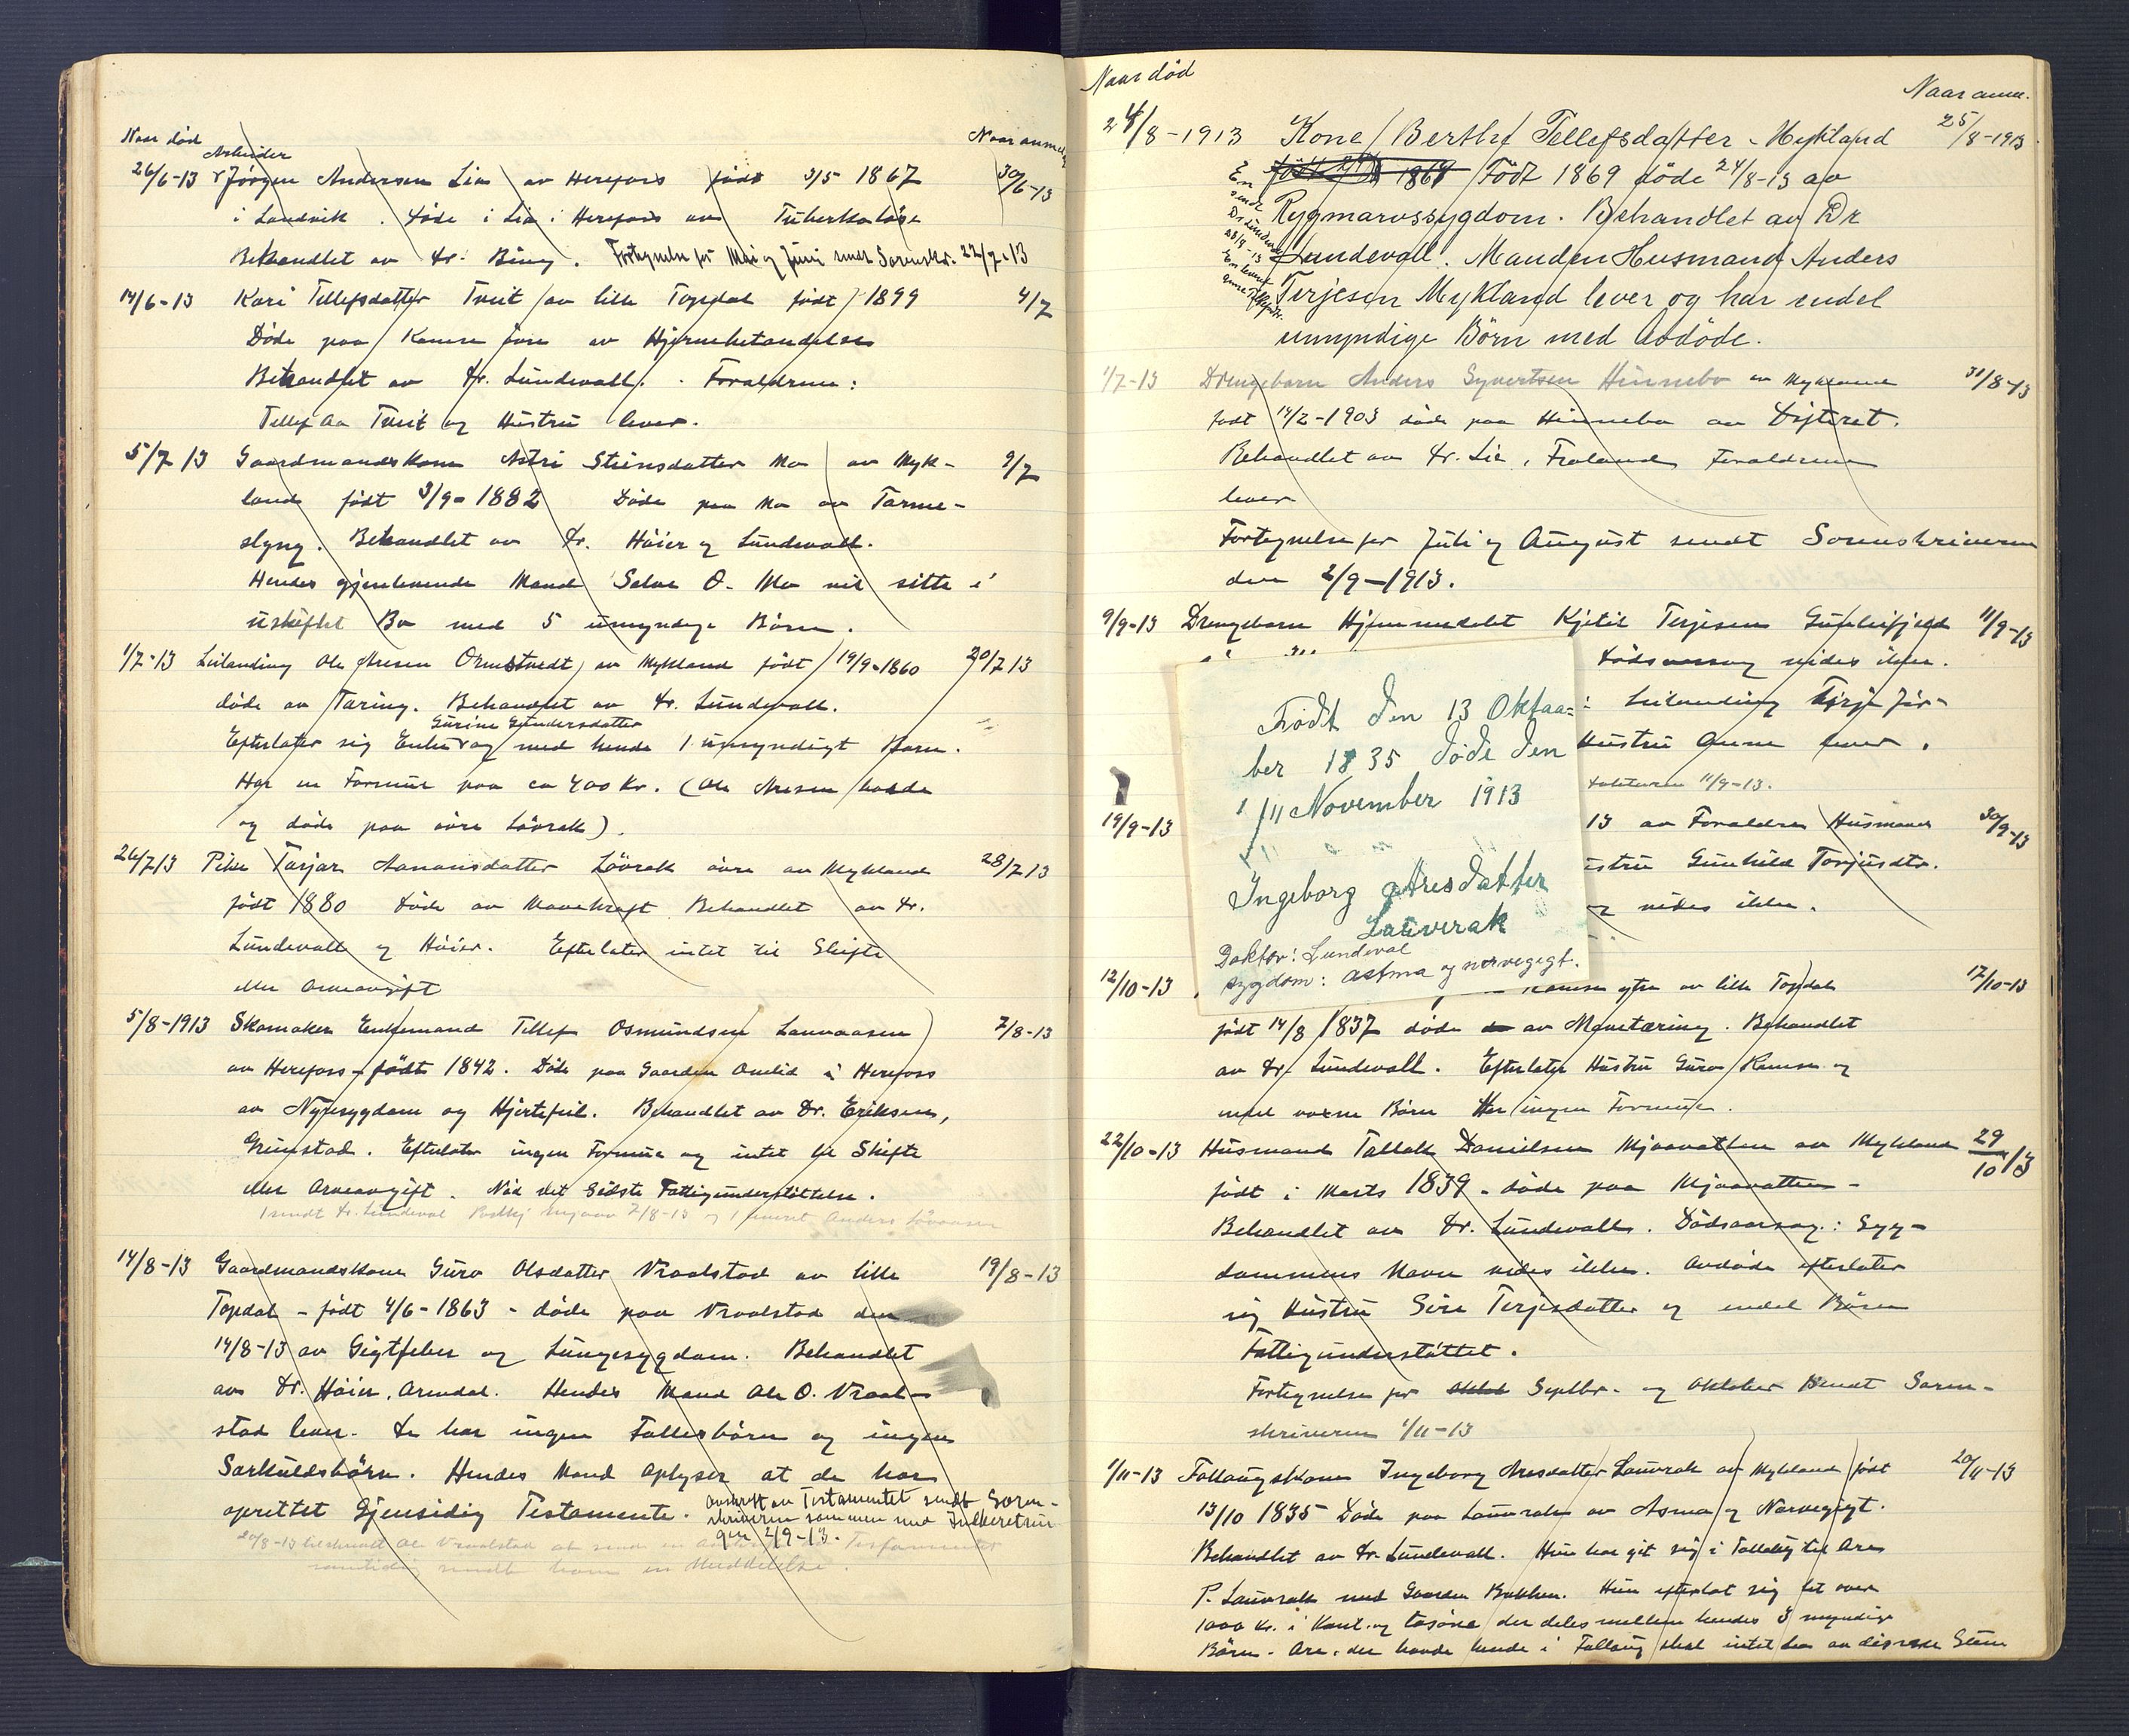 Naar død
Naar anm
Arbeider
26/6-13 Jörgen Andersen Lia av Herefoss född 3/5 1867 30/6-13
i Landvik. Döde i Lia i Herefoss av Tuberkulose
Behandlet av Dr. Bing. Fortegnelse for Mai og Juni sendt Sorenskr. 22/7-13
14/6-13 Kari Tellefsdatter Tveit av lille Topdal født 1899 4/7
Döde paa Ramse av Hjernebetændelse
Behandlet av Dr. Lundevall. Forældrene:
Tellef Aa Tveit og Hustru lever.
5/7 13 Gaardmandskone Astri Steinsdatter Mo av Myk- 9/7
land født 3/9-1882 Döde paa Mo av Tarme-
slyng. Behandlet av Dr. Höier og Lundevall.
Hendes gjenlevende Mand Salve O. Mo vil sitte i
uskiftet Bo med 5 umyndige Börn.
1/7-13 Leilending Ole Aresen Ormstvedt av Mykland født 19/9-1860 20/7 13
döde av Tæring. Behandlet av Dr. Lundevall.
Gurine Gundersdatter
Efterlater sig Enke og med hende 1 umyndigt Barn.
Har en Formue paa ca 400 Kr. (Ole Aresen hadde
og döde paa övre Lövrak).
26/7 13 Pike Tarjer Aanonsdatter Lövrak övre av Mykland 28/7 13
født 1880 Döde av Mavekræft Behandlet av Dr.
Lundevall og Höier. Efterlater intet til Skifte
eller Arveavgift
5/8-1913 Skomaker Enkemand Tellef Osmundsen Lauvaasen 7/8-13
av Herefoss født 1842. Döde paa Gaarden Omlid i Herefoss
av Nyresygdom og Hjertefeil. Behandlet av Dr. Eriksen,
Grimstad. Efterlater ingen Formue og intet til Skifte
eller Arveavgift. Nöd det Sidste Fattigunderstöttelse.
1 sendt Dr. Lundeval 7/8-13 og 1 Anders Lövaasen
14/8-13 Gaardmandskone Guro Olsdatter Vraalstad av lille 19/8-13
Topdal - født 4/6-1863 - döde paa Vraalstad den
14/8-13 av Gigtfeber og Lungesygdom. Behandlet
av Dr. Höier, Arendal. Hendes Mand Ole O. Vraal-
stad lever. De har ingen Fællesbörn og ingen
Særkuldsbörn. Hendes Mand oplyser at de har
oprettet Gjensidig Testamente. Avskrift av Testamentet sendt Soren-
skriveren sammen med Indberetnin
gen 2/9-13.
20/8-13 Ole Vraalstad at sende en Testamentet
samtidig sendt ham en Meddelelse.
Naar død
Naar anm.
24/8-1913 Kone Berthe Tellefsdatter - Mykland 25/8-1913
1868 Födt 1869 döde 24/8-13 av
En sendt Dr Lundev
Rygmarvssygdom. Behandlet av Dr
Lundevall. Manden Husmand Anders
Terjesen Mykland lever og har endel
umyndige Börn med Avdöde.
1/7-13 Drengebarn Anders Syvertsen Hinnebo av Mykland 31/8-13
født 14/2-1903 döde paa Hinnebo av Difterit.
Behandlet av Dr. Lie, Froland Forældrene
lever
Fortegnelse for Juli og August sendt Sorenskriveren
den 2/9-1913.
9/9-13 Drengebarn Hjemmedöbt Kjetil Terjesen Gunleifjeld 11/9-13
Dödsaarsag vides ikke.
Leilending Terje Jör-
Hustru Anne lever.
Doktoren 11/9-13.
19/9-13 13 av Forældre Husmand 30/9-13
ustru Gunhild Torjusdtr.
vides ikke.
Födt den 13 Oktaa-
ber 1835 döde den
1/11 November 1913
Ingeborg Aresdatter
Lauverak
Doktor: Lundeval
sygdom: astma og nervegigt.
12/10-13 Ramse ytre av lille Topdal 17/10-13
født 14/8 1837 döde av Mavetæring. Behandlet
av Dr. Lundevall. Efterlater Hustru Guro Ramse og
med voxne Börn Har ingen Formue.
22/10-13 Husmand Tallak Danielsen Mjaavatten av Mykland 29/10 13
født i Marts 1839 - döde paa Mjaavatten -
Behandlet av Dr. Lundevall. Dödsaarsag: Syg-
dommens Navn vides ikke. Avdöde efterlater
sig Hustru Siri Terjesdatter og endel Börn
Fattigunderstöttet.
Fortegnelse for Septbr. og Oktober sendt Soren-
skriveren 1/11-13
1/11-13 Follaugskone Ingeborg Aresdatter Lauvrak av Mykland født 20/11-13
13/10 1835 Döde paa Lauvrak av Asma og Nervegigt.
Behandlet av Dr. Lundevall. Hun har git sig i Follaug til Are
P. Lauvrak med Gaarden Bakken. Hun efterlot sig litt over
1000 Kr. i Kont. og Lösöre der deles mellem hendes 3 myndige
Börn - Are, der havde hende i Follaug skal intet ha av disse